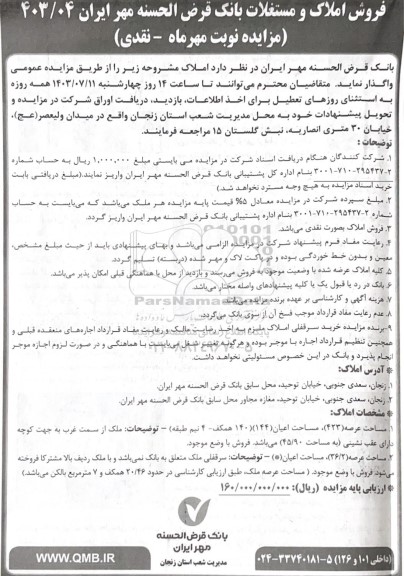 فروش املاک و مستغلات بانک قرض الحسنه مهر ایران ۴۰۳/۰۴
(مزایده نوبت مهرماه - نقدی)
بانک قرض الحسنه مهر ایران در نظر دارد املاک مشروحه زیر را از طریق مزایده عمومی
واگذار نماید. متقاضیان محترم می‌توانند تا ساعت ۱۴ روز چهارشنبه ۱۴۰۳/۰۷/۱۱ همه روزه
به استثنای روزهای تعطیل برای اخذ اطلاعات، بازدید، دریافت اوراق شرکت در مزایده و
تحویل پیشنهادات خود به محل مدیریت شعب استان زنجان واقع در میدان ولیعصر(عج)،
خیابان ۳۰ متری انصاریه، نبش گلستان ۱۵ مراجعه فرمایند.
توضیحات :
۱. شرکت کنندگان هنگام دریافت اسناد شرکت در مزایده می بایستی مبلغ ۱,۰۰۰,۰۰۰ ریال به حساب شماره
۳۰۰۱-۷۱۰-۲۹۵۴۳۷-۲ بنام اداره کل پشتیبانی بانک قرض الحسنه مهر ایران واریز نمایند.(مبلغ دریافتی بابت
خرید اسناد مزایده به هیچ وجه مسترد نخواهد شد.)
۲. مبلغ سپرده شرکت در مزایده معادل ۵% قیمت پایه مزایده هر ملک می‌باشد که می‌بایست به حساب
شماره ۳۰۰۱-۷۱۰-۲۹۵۴۳۷-۲ بنام اداره پشتیبانی بانک قرض الحسنه مهر ایران واریز گردد.
۳. فروش املاک بصورت نقدی می‌باشد.
۴. رعایت مفاد فرم پیشنهاد شرکت در مزایده الزامی می‌باشد و بهای پیشنهادی باید از حیث مبلغ مشخص،
معین و بدون خط خوردگی بوده و در پاکت لاک و مهر شده (دربسته) تسلیم گردد.
۵. کلیه املاک عرضه شده با وضعیت موجود به فروش می‌رسد و بازدید از محل با هماهنگی قبلی امکان پذیر می‌باشد.
۶. بانک در رد یا قبول یک یا کلیه پیشنهادهای واصله مختار می‌باشد.
۷. هزینه آگهی و کارشناسی بر عهده برنده مزایده می‌باشد.
۸. عدم رعایت مفاد قرارداد موجب فسخ آن از سوی بانک می‌گردد.
۹- برنده مزایده خرید سرقفلی املاک ملزم به اخذ رضایت مالک و رعایت مفاد قرارداد اجاره‌های منعقده قبلی و
همچنین تنظیم قرارداد اجاره با موجر بوده و هرگونه تغییر شغل می‌بایست با هماهنگی و در صورت لزوم اجازه موجر
انجام پذیرد و بانک در این خصوص مسئولیتی نخواهد داشت.
* آدرس املاک:
۱. زنجان، سعدی جنوبی، خیابان توحید، محل سابق بانک قرض الحسنه مهر ایران.
۲. زنجان، سعدی جنوبی، خیابان توحید، مغازه مجاور محل سابق بانک قرض الحسنه مهر ایران.
* مشخصات املاک:
۱. مساحت عرصه(۴۲۳)، مساحت اعیان(۱۴۴)(۱۴۰ همکف- ۴ نیم طبقه) – توضیحات: ملک از سمت غرب به جهت کوچه
دارای عقب نشینی (به مساحت ۴۵/۹۰) می‌باشد. فروش با وضع موجود.
۲. مساحت عرصه(۳۶/۲)، مساحت اعیان(*) – توضیحات: سرقفلی ملک متعلق به بانک نمی‌باشد و با ملک ردیف بالا مشترکا فروخته
می‌شود فروش با وضع موجود. ( مساحت عرصه ملک، طبق ارزیابی کارشناسی در حدود ۲۰/۴۶ همکف و ۷ مترمربع بالکن می‌باشد.)
* ارزیابی پایه مزایده (ریال): ۱۶۰/۰۰۰/۰۰۰/۰۰۰
بانک قرض الحسنه
مهر ایران
مدیریت شعب استان زنجان
WWW.QMB.IR
۰۲۴-۳۳۷۴۰۱۸۱-۵ (داخلی ۱۰۱ و ۱۲۶)